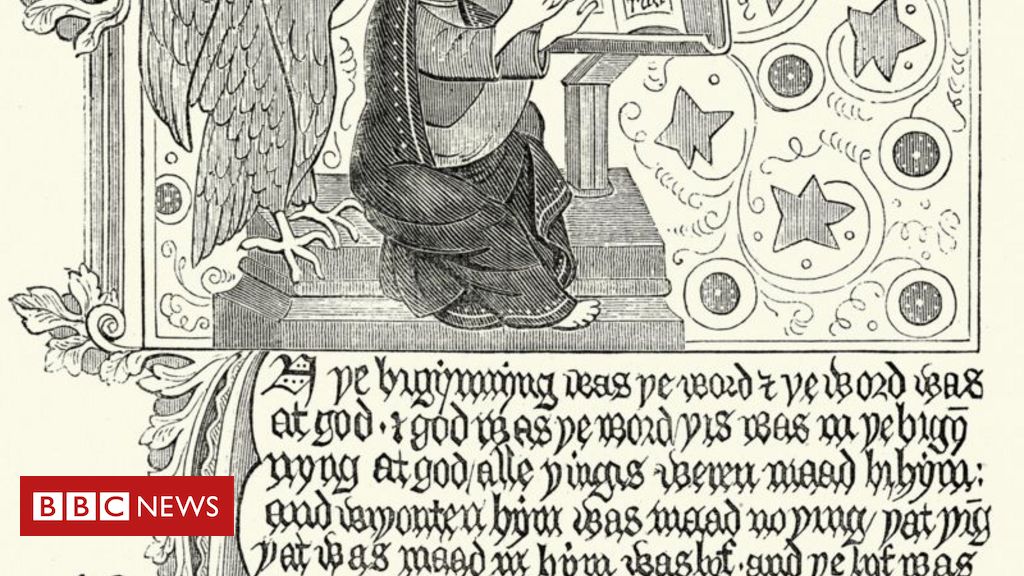 N ye bigynnyng was ye word ⁊ ye word was
at god · ⁊ god was ye word / yis was in ye bigyn̄
nyng at god / alle yingis weren maad bi hym :
and wiyouten hym was maad no ying / yat yīg
yat was maad in hym was lyf · and ye lyf was
BBC NEWS